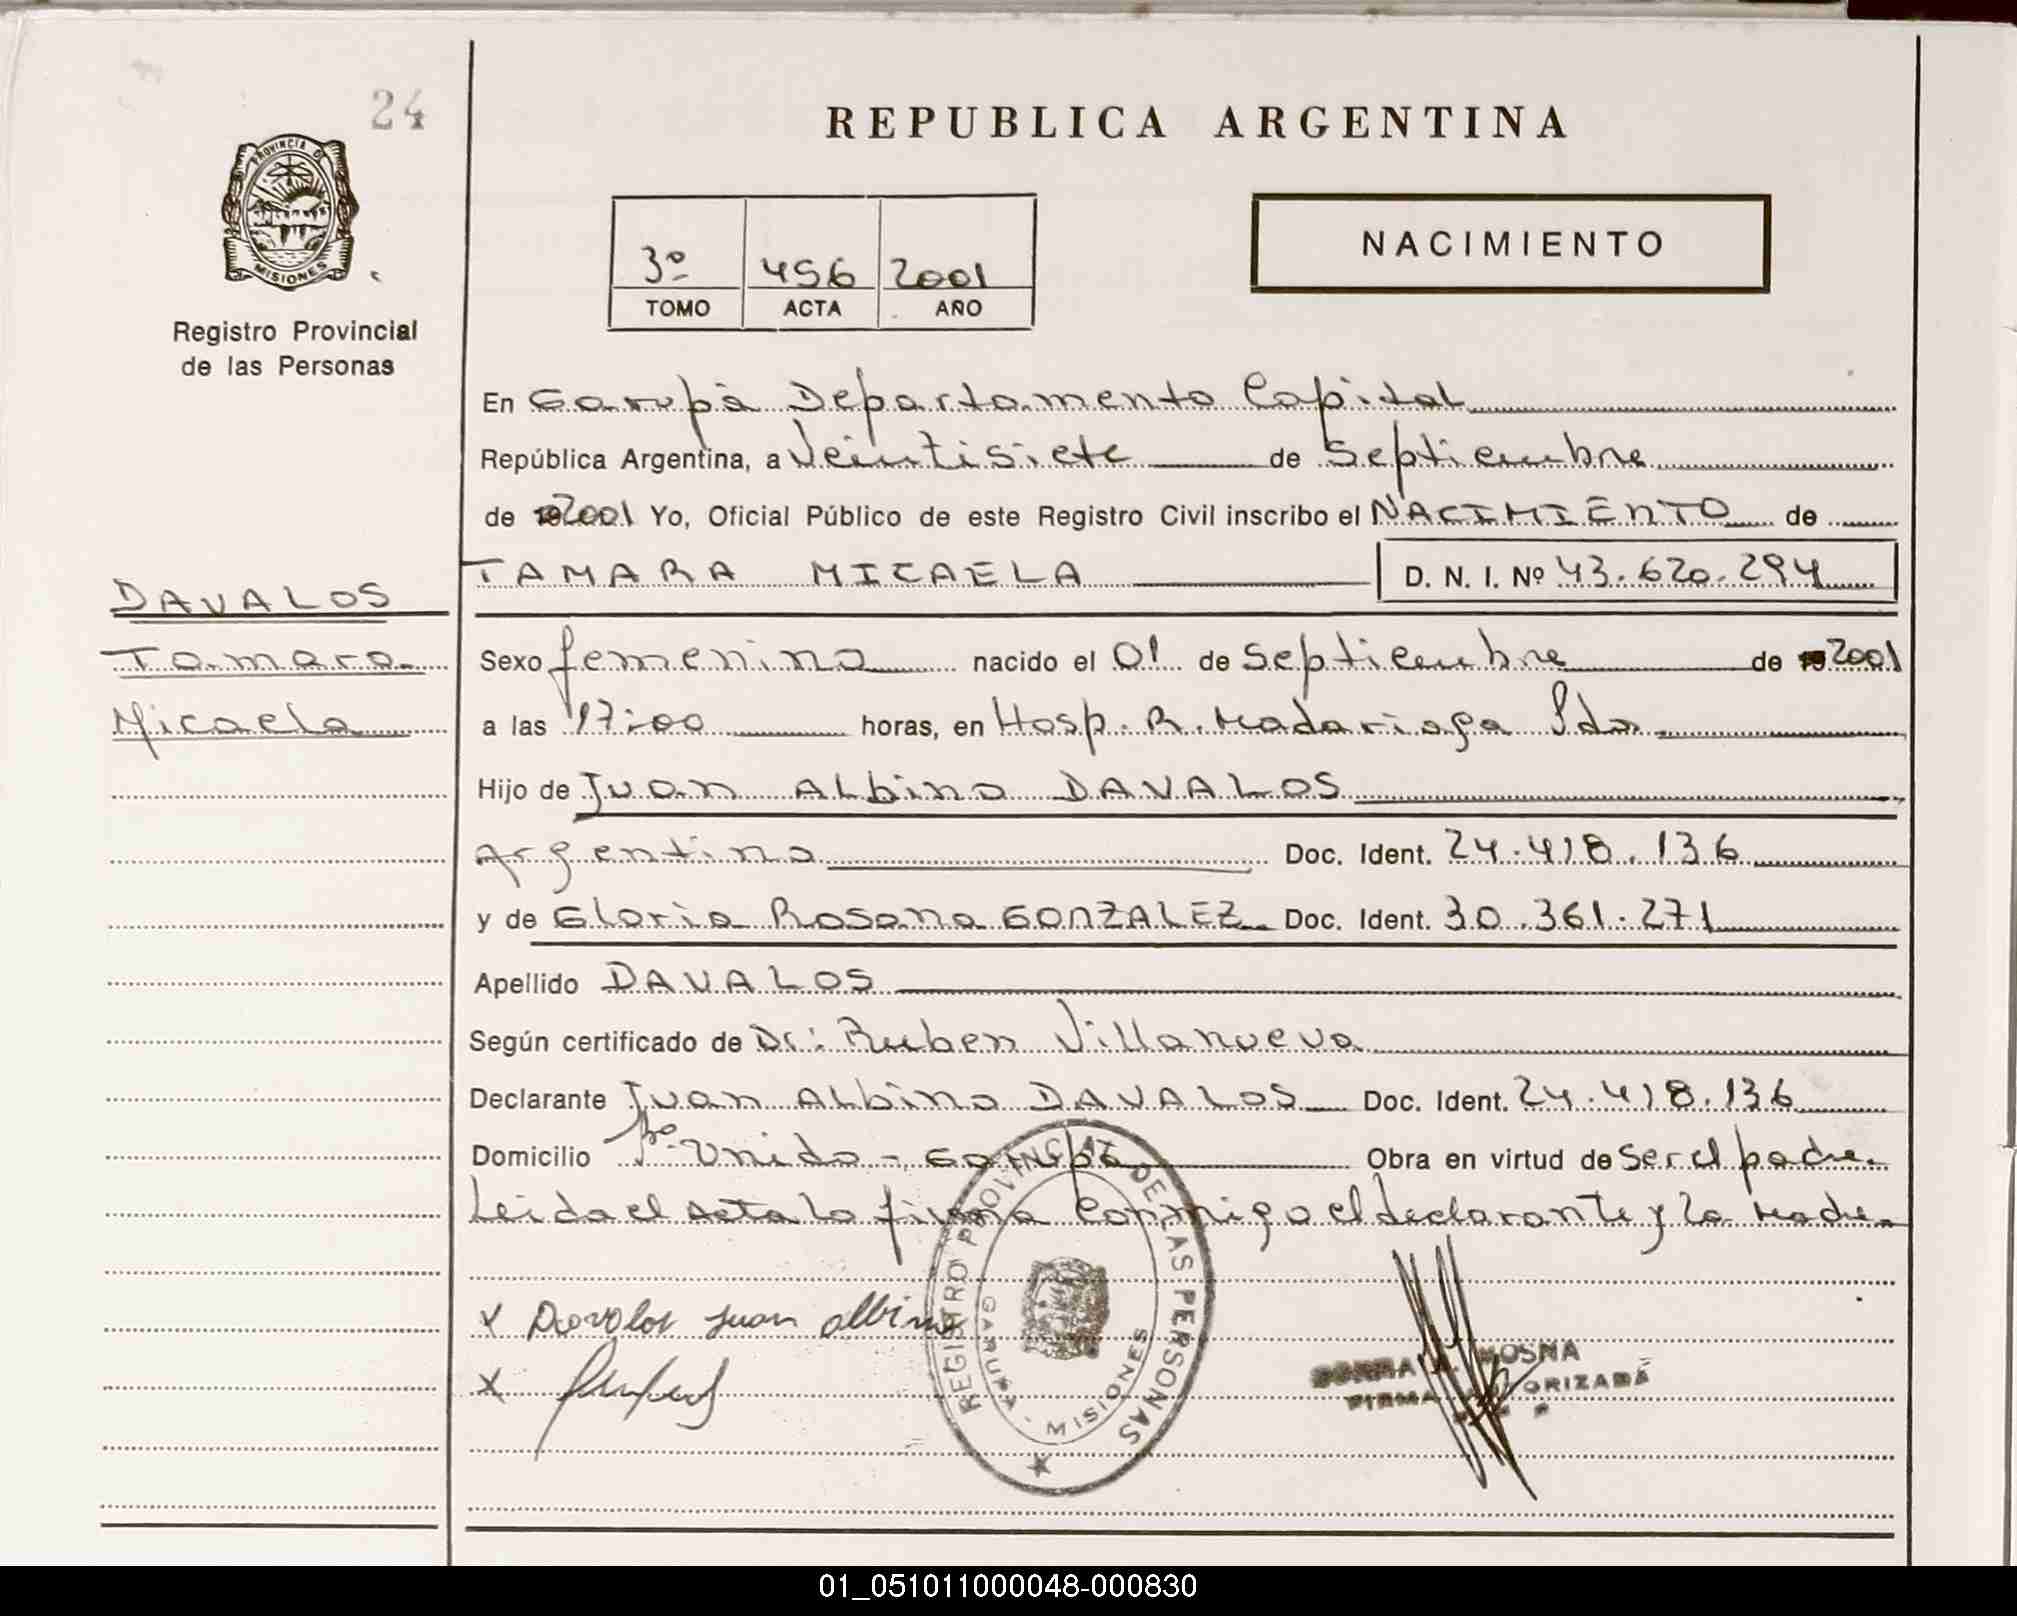 24
REPUBLICA ARGENTINA
PROVINCIA DE
MISIONES
Registro Provincial
de las Personas
3º 456 2001
TOMO ACTA AÑO
NACIMIENTO
En Garupá Departamento Capital
República Argentina, a Veintisiete de Septiembre
de 2001 Yo, Oficial Público de este Registro Civil inscribo el NACIMIENTO de
TAMARA MICAELA D. N. I. Nº 43.620.294
DAVALOS
Tamara
Micaela
Sexo femenino nacido el 01 de Septiembre de 2001
a las 17:00 horas, en Hosp. R. Madariaga Pdas
Hijo de Juan Albino DAVALOS
Argentino Doc. Ident. 24.418.136
y de Gloria Rosana GONZALEZ Doc. Ident. 30.361.271
Apellido DAVALOS
Según certificado de Dr: Ruben Villanueva
Declarante Juan Albino DAVALOS Doc. Ident. 24.418.136
Domicilio Bº Unido - Garupá Obra en virtud de Ser el padre
Leida el acta la firma Conmigo el declarante y la Madre
x Davalos Juan albino
x
REGISTRO PROVINCIAL DE LAS PERSONAS
GARUPA - MISIONES
MOSNA
FIRMA AUTORIZADA
01_051011000048-000830